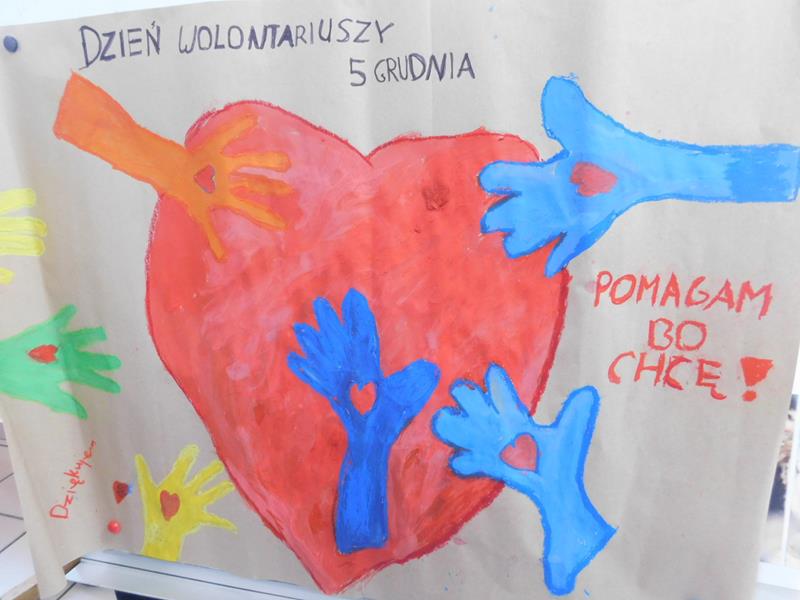 DZIEŃ WOLONTARIUSZY
5 GRUDNIA
POMAGAM
BO
CHCĘ!
Dziękuję...